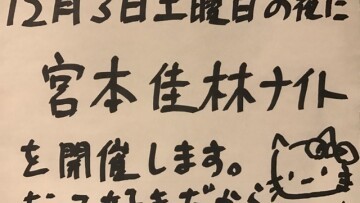 12月3日土曜日の夜に
宮本佳林ナイト
を開催します。